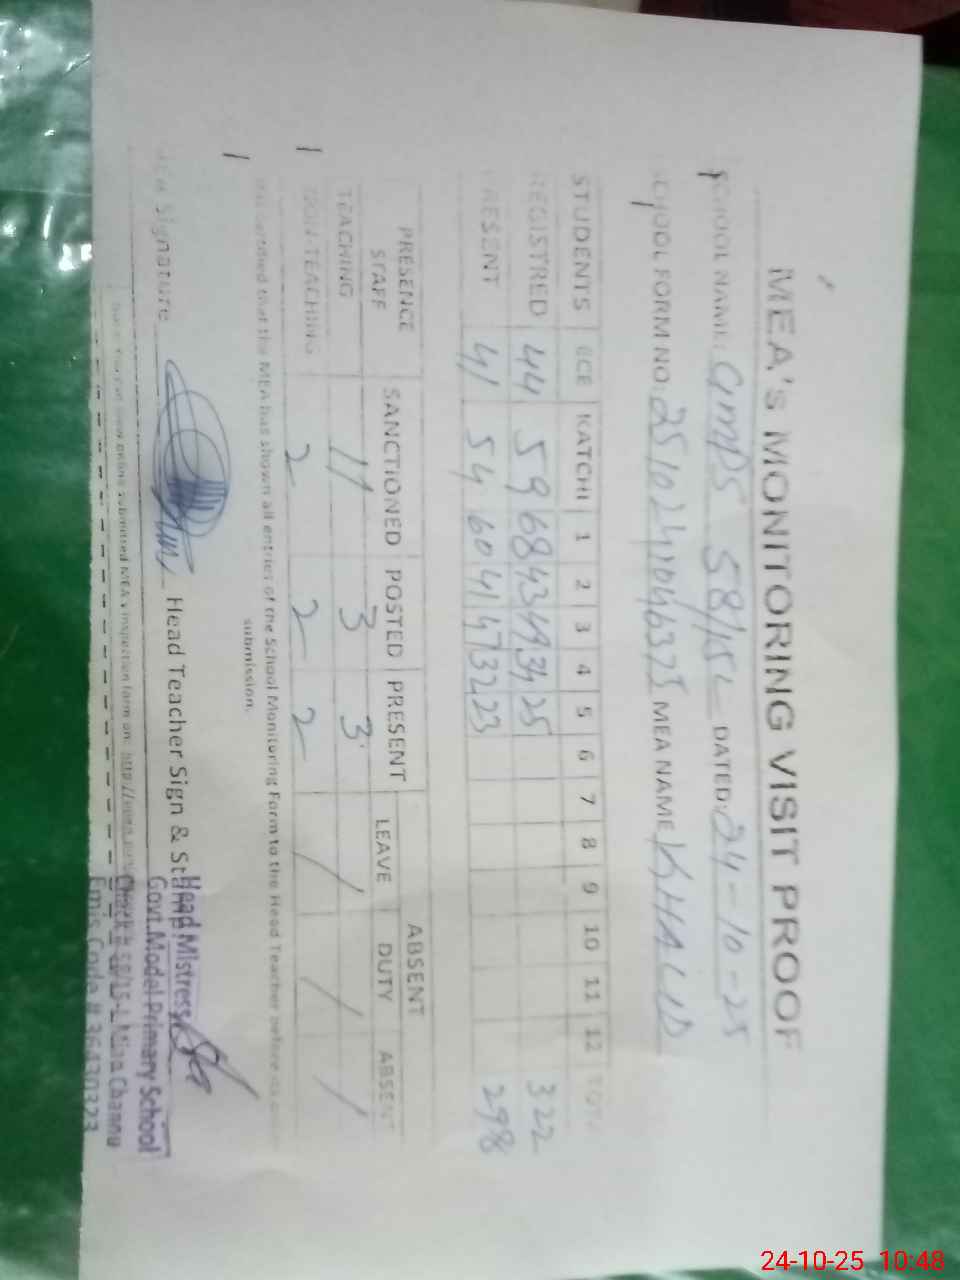 MEA's MONITORING VISIT PROOF
SCHOOL NAME: GMPS 58/15L DATED: 24-10-25
SCHOOL FORM NO: MEA NAME KHALID
STUDENTS ECE KATCHI 1 2 3 4 5 6 7 8 9 10 11 12 TOTAL
REGISTRED 44 59 68 43 49 34 25 322
PRESENT 41 54 60 41 47 32 23 298
PRESENCE STAFF SANCTIONED POSTED PRESENT ABSENT
LEAVE DUTY ABSENT
TEACHING 11 3 3 /
NON-TEACHING 2 2 2 / /
that the MEA has shown all entries of the School Monitoring Form to the Head Teacher before
submission.
Signature Head Teacher Sign & Stamp
Head Mistress
Govt. Model Primary School
Chak # 58/15-L Mian Channu
Emis Code # 36430323
online submitted MEA's inspection form on: http://
24-10-25 10:48